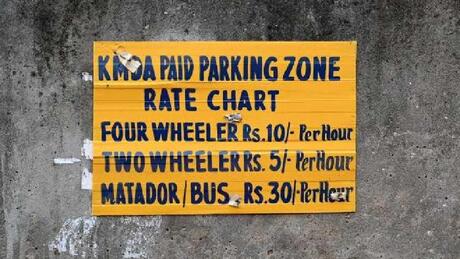 KMDA PAID PARKING ZONE
RATE CHART
FOUR WHEELER Rs.10/- Per Hour
TWO WHEELER Rs. 5/- Per Hour
MATADOR/BUS Rs.30/- Per Hour